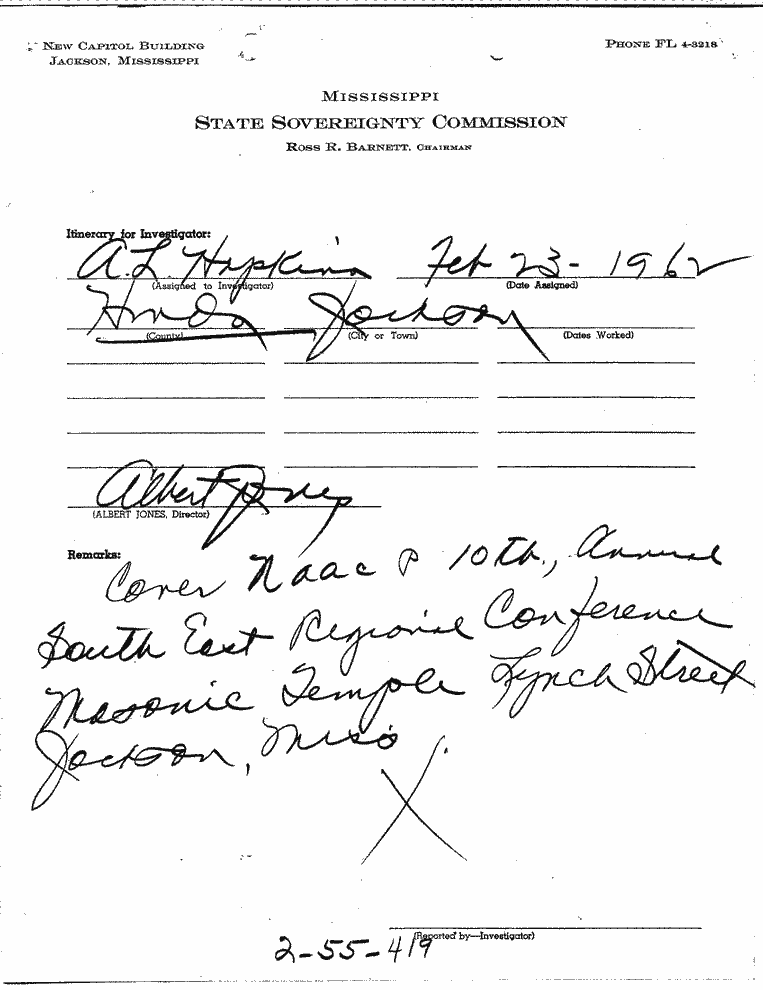 NEW CAPITOL BUILDING
JACKSON, MISSISSIPPI
PHONE FL 4-3218
MISSISSIPPI
STATE SOVEREIGNTY COMMISSION
ROSS R. BARNETT, CHAIRMAN
Itinerary for Investigator:
A.L. Hopkins Feb 23 - 1962
(Assigned to Investigator) (Date Assigned)
Hinds Jackson
(County) (City or Town) (Dates Worked)
Albert Jones
(ALBERT JONES, Director)
Remarks:
Cover NAACP 10th, Annual
South East Regional Conference
Masonic Temple Lynch Street
Jackson, Miss
X
(Reported by—Investigator)
2-55-419